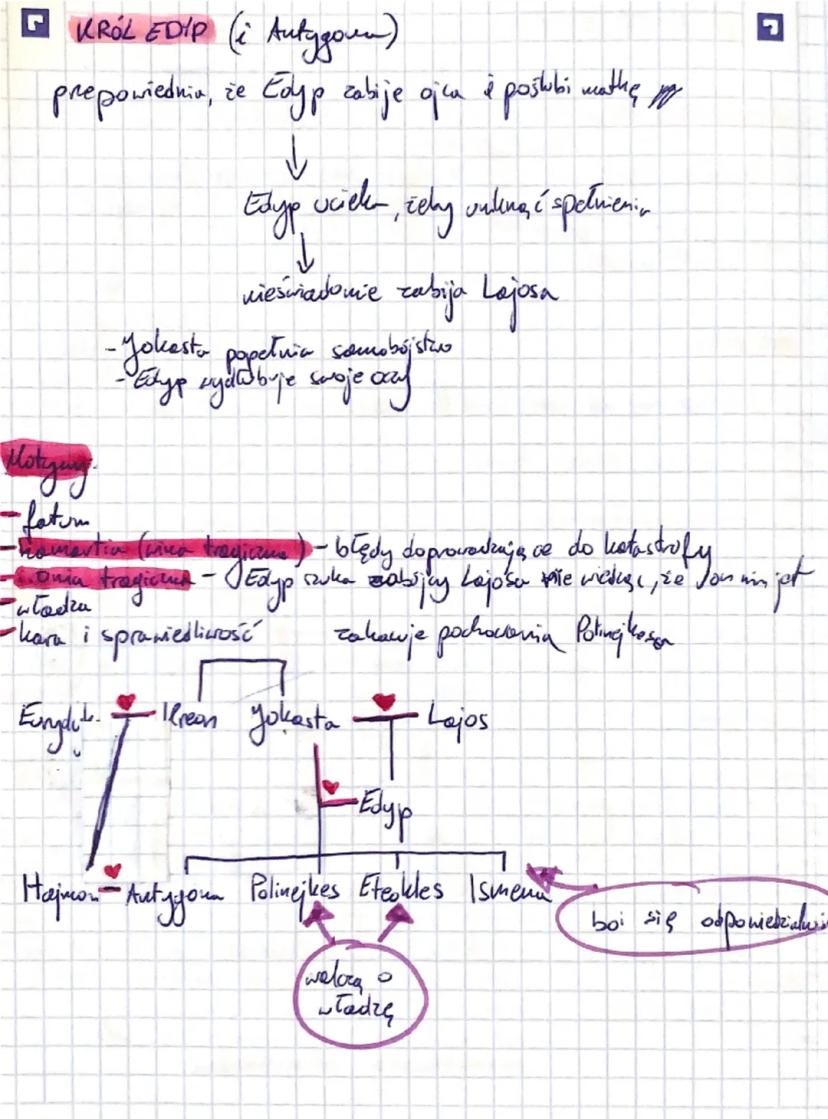 KRÓL EDYP (i Antygona)
przepowiednia, że Edyp zabije ojca i poślubi matkę
Edyp ucieka, żeby uniknąć spełnienia
nieświadomie zabija Lajosa
- Jokasta popełnia samobójstwo
- Edyp wydłubuje swoje oczy
Motywy:
- fatum
- hamartia (wina tragiczna) - błędy doprowadzające do katastrofy
- ironia tragiczna - Edyp szuka zabójcy Lajosa nie wiedząc, że on nim jest
- władza
- kara i sprawiedliwość
zakazuje pochowania Polinejkesa
Eurydyka Kreon Jokasta Lajos
Edyp
Hajmon Antygona Polinejkes Eteokles Ismena
boi się odpowiedzialności
walczą o
władzę